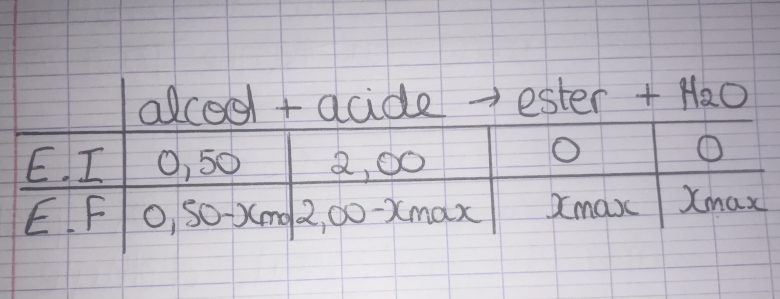 alcool + acide → ester + H2O
E.I 0,50 2,00 0 0
E.F 0,50-xma 2,00-xmax xmax xmax